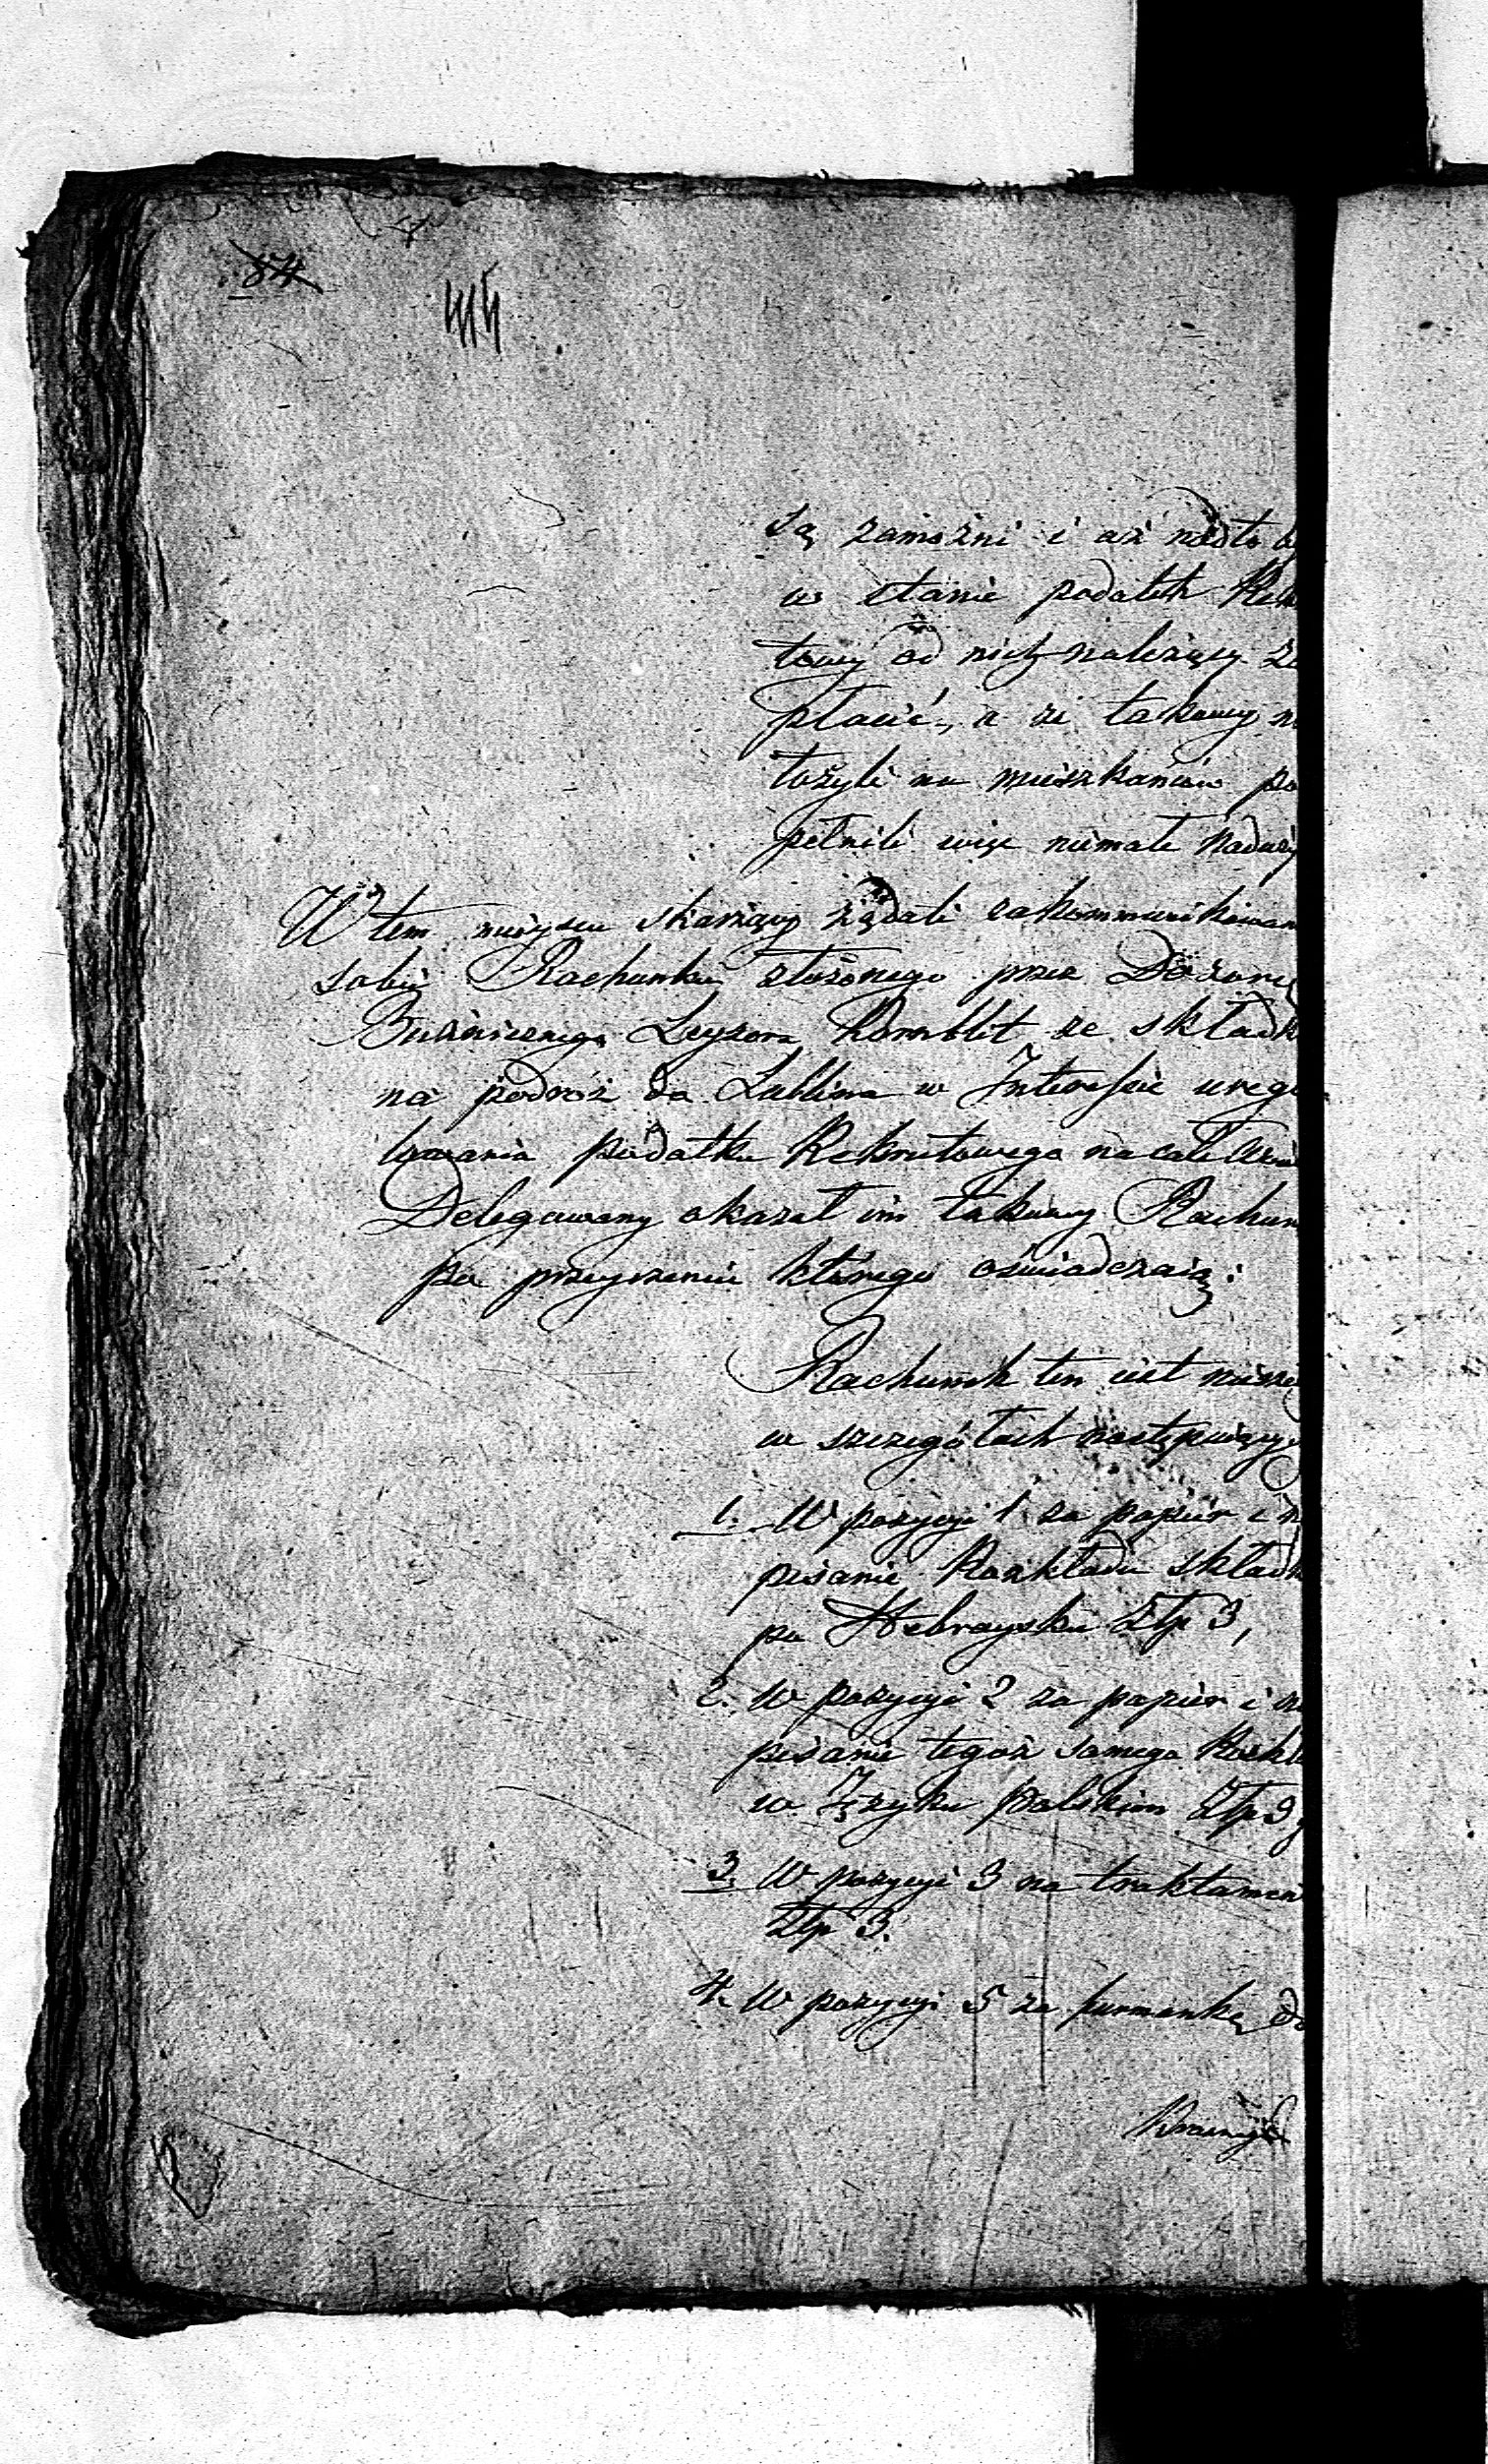 84
są zamożni i aż nadto b
w stanie podatek Rek
towy od nich należący za
płacić, a że takowy n
łożyli na mieszkańców po
pełnili więc niemałe naduży
W tem mieyscu skarżący żądali zakommunikowan
sobie Rachunku złożonego przez Dozorcę
Bużnicznego Leyzora Kornblit ze składk
na podróż do Lublina w Interessie uregu
lowania podatku Rekrutowego na całe
Delegowany okazał im takowy Rachun
po przeyrzeniu którego oświadczaią:
Rachunek ten iest
w szczegółach następuiący
1. W pozycyi 1 za papier i n
pisanie Rozkładu składk
po Hebraysku Złp 3,
2. W pozycyi 2 za papier i na
pisanie tegoż samego Rozkła
w Języku polskim Złp 3
3. W pozycyi 3 na traktamen
Złp 3.
4. W pozycyi 5 za furmankę do